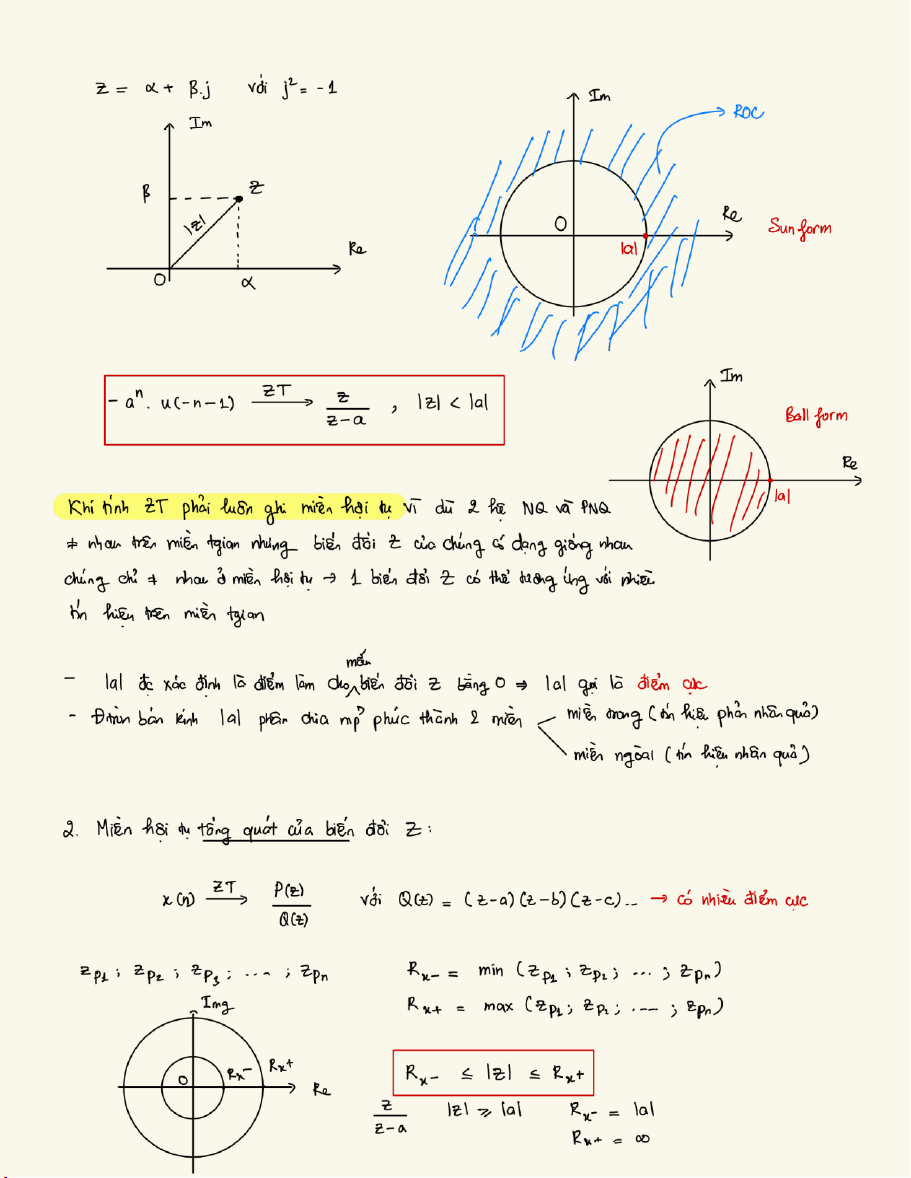 z = α + β.j với j² = -1
Im
β
z
|z|
Re
O
α
Im
ROC
O
Re
|a|
Sun form
- aⁿ. u(-n-1) ZT → z / z-a , |z| < |a|
Im
Ball form
Re
|a|
Khi tính ZT phải luôn ghi miền hội tụ vì dù 2 hệ NQ và PNQ
≠ nhau trên miền tgian nhưng biến đổi z của chúng có dạng giống nhau
chúng chỉ ≠ nhau ở miền hội tụ → 1 biến đổi z có thể tương ứng với nhiều
tín hiệu trên miền tgian
- |a| đc xác định là điểm làm cho mẫu biến đổi z bằng 0 ⇒ |a| gọi là điểm cực
- Đtròn bán kính |a| phân chia mp phức thành 2 miền
miền trong (tín hiệu phản nhân quả)
miền ngoài (tín hiệu nhân quả)
2. Miền hội tụ tổng quát của biến đổi z:
x(n) ZT → P(z) / Q(z) với Q(z) = (z-a)(z-b)(z-c)... → có nhiều điểm cực
zp1 ; zp2 ; zp3 ; .... ; zpn
Rx- = min (zp1 ; zp2 ; ... ; zpn)
Rx+ = max (zp1 ; zp2 ; ... ; zpn)
Img
O
Rx-
Rx+
Re
Rx- ≤ |z| ≤ Rx+
z / z-a |z| ⩾ |a| Rx- = |a|
Rx+ = ∞